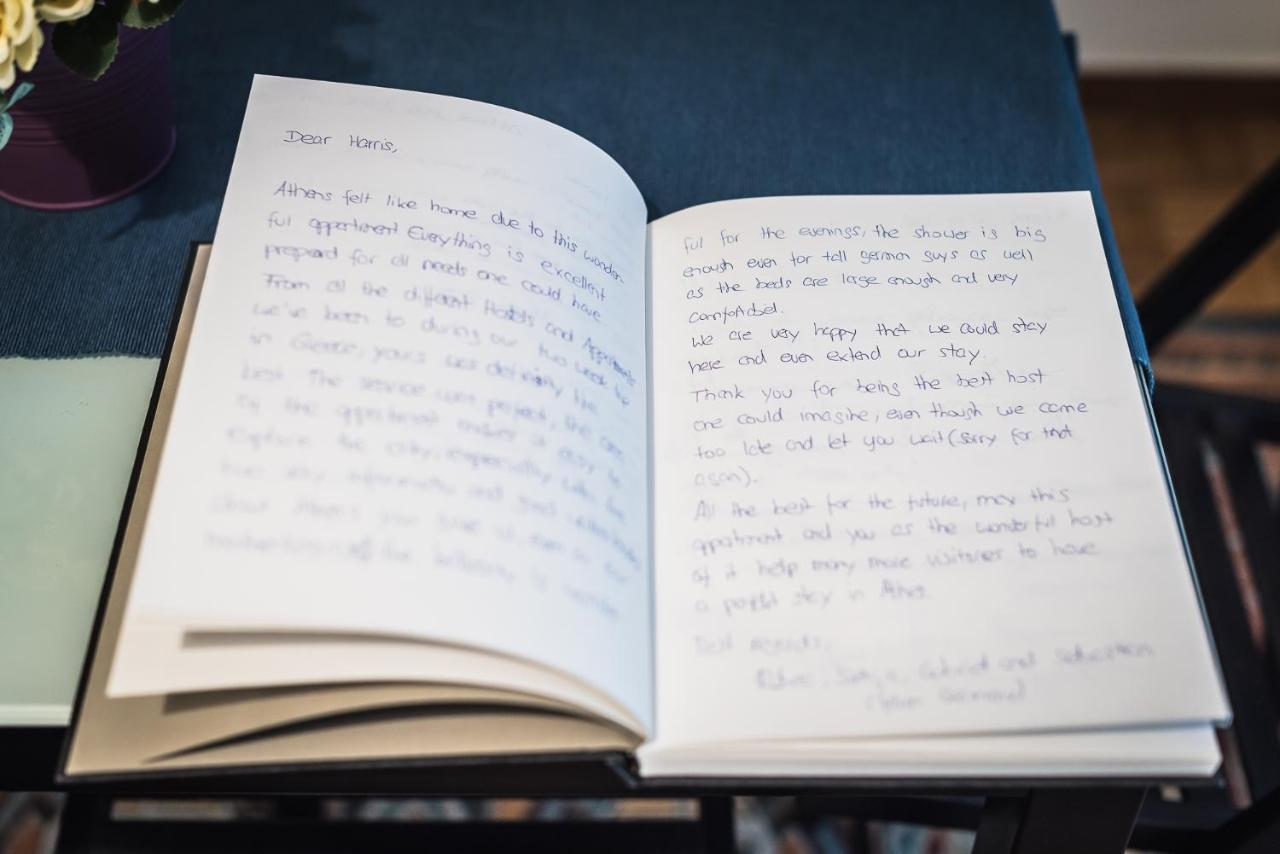 Dear Harris,
Athens felt like home due to this wonder-
ful appartment Everything is excellent
prepared for all needs one could have
From all the different Hotels and Appartments
we've been to during our two week trip
in Greece, yours was definitely the
best The service was perfect, the
of the appartment makes it easy to
explore the city, especially with the
and good
about Athens you gave us, even
the balcony is wonder-
ful for the evenings, the shower is big
enough even for tall german guys as well
as the beds are large enough and very
comfortabel.
We are very happy that we could stay
here and even extend our stay.
Thank you for being the best host
one could imagine, even though we came
too late and let you wait (sorry for that
again).
All the best for the future, may this
appartment and you as the wonderful host
of it help many more visitores to have
a perfect stay in Athen.
Best regards,
Gabriel and Sebastian